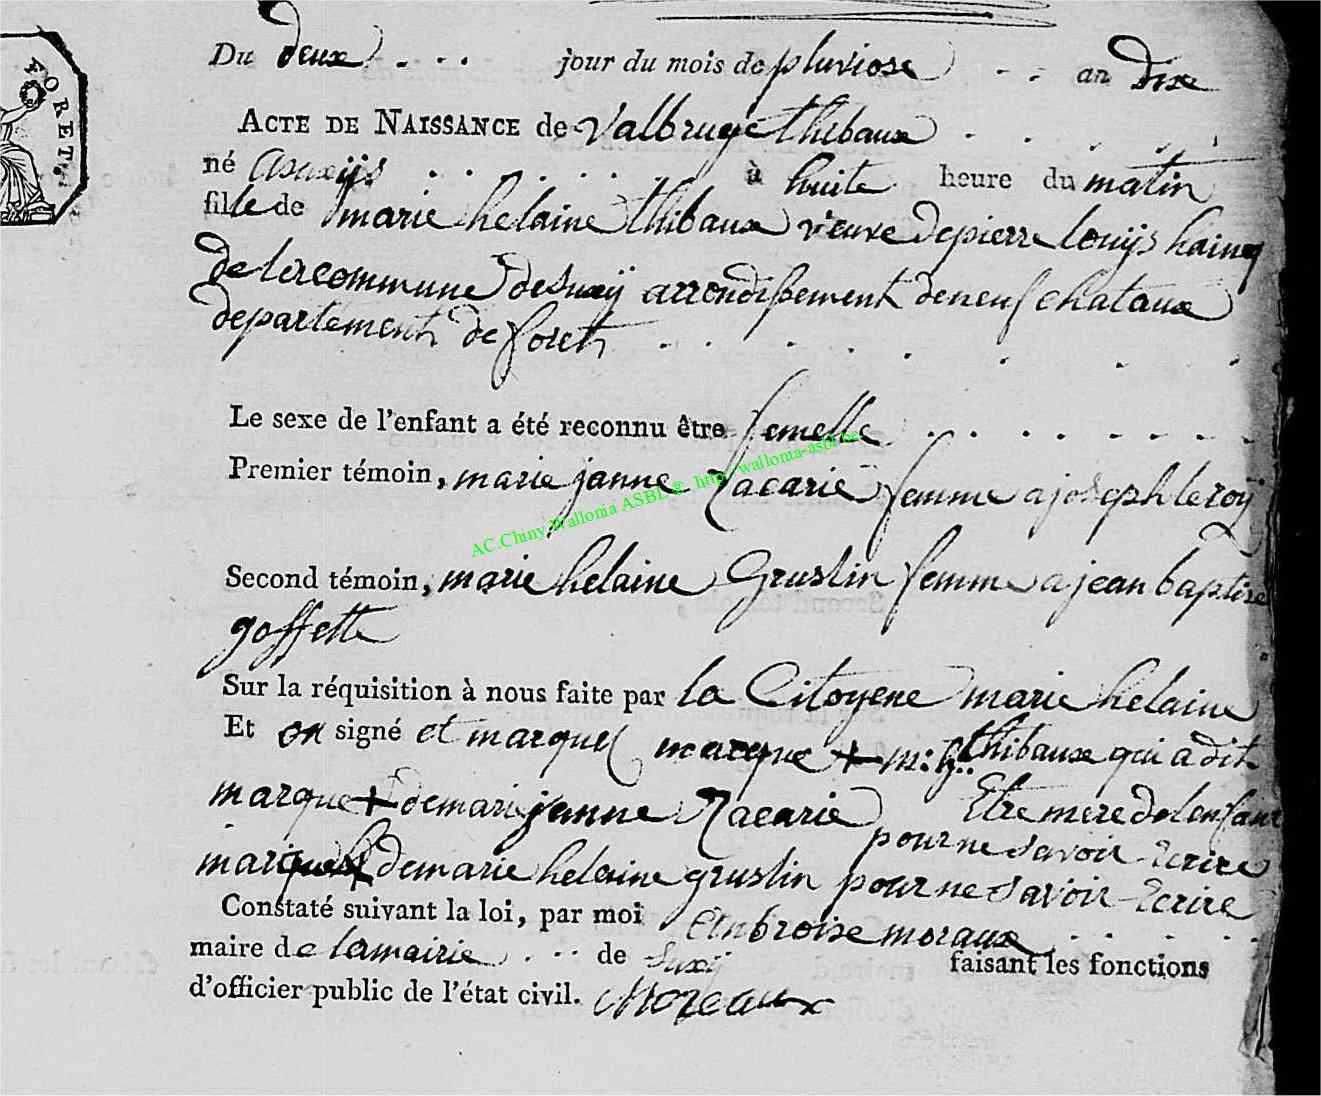 FORETS
Du deux jour du mois de pluviose an dix
ACTE DE NAISSANCE de valbruge thibaux
né asuxijs à huite heure du matin
fille de marie helaine thibaux veuve de pierre louijs hainq
de la commune de suxij arrondissement de neufchataux
departement de foret
Le sexe de l'enfant a été reconnu être femelle
Premier témoin, marie janne Zacarie femme a joseph le roij
AC.Chiny Wallonia ASBL © http://wallonia-asbl.be
Second témoin, marie helaine Gruslin femme a jean baptise
goffette
Sur la réquisition à nous faite par la Citoyene marie helaine
Et on signé et marques marque + m: h.. thibaux qui a dit
marque + de marie janne Zacarie Etre mere de l enfant
pour ne savoir Ecrire
marque de marie helaine gruslin pour ne savoir Ecrire
Constaté suivant la loi, par moi Ambroise moraux
maire de la mairie de Suxij faisant les fonctions
d'officier public de l'état civil. Moreaux